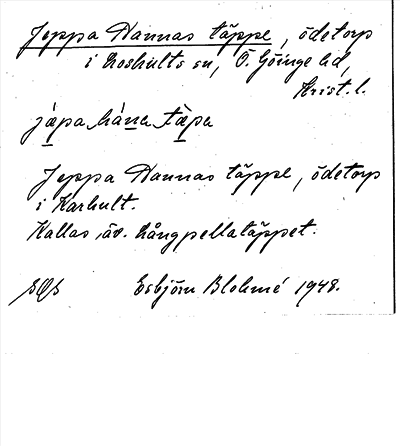 Jeppa Hannas täppe, ödetorp
i Loshults sn, Ö. Göinge hd,
Krist. l.
jäpa hána täpa
Jeppa Hannas täppe, ödetorp
i Karhult.
Kallas äv. Långpellatäppet.
Esbjörn Blohmé 1948.